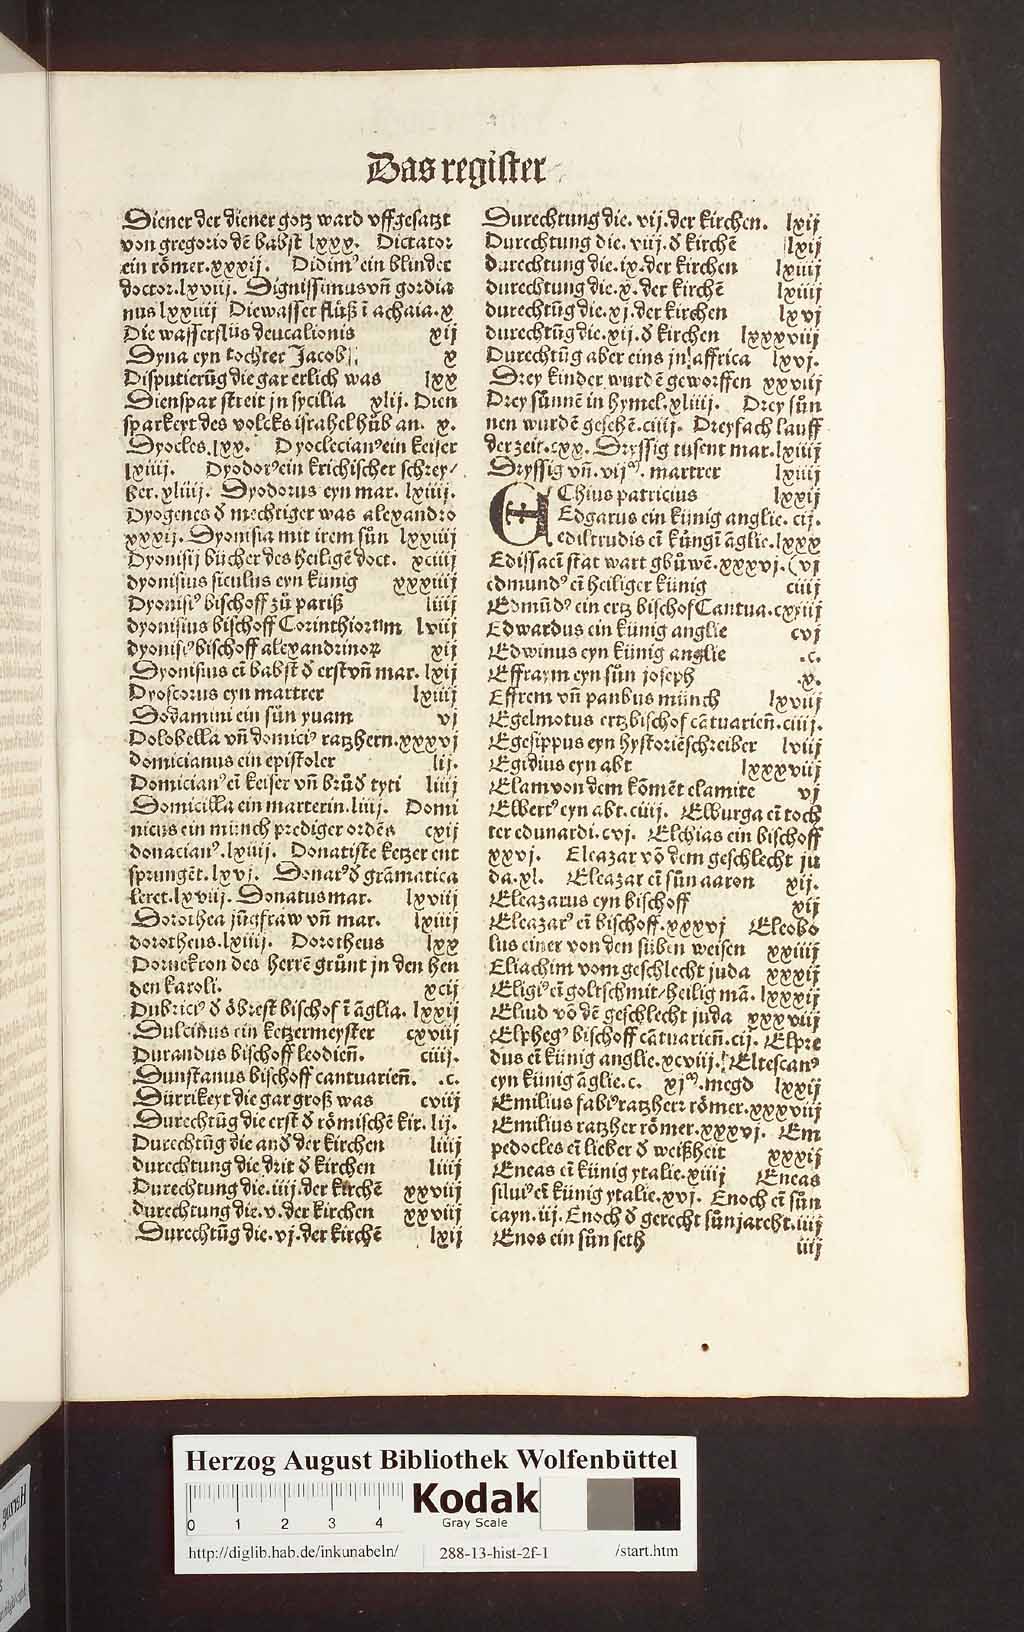 Das register
Diener der diener gotz ward vffgesatzt
von gregorio dē babst lxxx. Dictator
ein römer.xxxij. Didim⁹ ein blinder
doctor.lxviij. Dignissimus vn̄ gordia
nus lxxiiij Die wasser flüß ī achaia.x
Die wasserflüs deucalionis xij
Dyna eyn tochter Jacob x
Disputierūg die gar erlich was lxx
Dienspar streit jn sycilia xlij. Dien
sparkeyt des volcks israhel hůb an. x.
Dyocles.lxx. Dyoclecian⁹ ein keiser
lxiiij. Dyodor⁹ ein krichischer schrey/
ber.xliiij. Dyodorus eyn mar. lxiiij.
Dyogenes d̕ mechtiger was alexandro
xxxij. Dyonisia mit irem sůn lxxiiij
Dyonisij bücher des heiligē doct. xciiij
dyonisius siculus eyn künig xxxiiij
Dyonisi⁹ bischoff zů pariß liiij
dyonisius bischoff Corinthiorum lviij
dyonisi⁹ bischoff alexandrinoꝝ xij
Dyonisius eī babst d̕ erst vn̄ mar. lxij
Dyoscorus eyn martrer lxiiij
Dodamini ein sůn yuam vj
Dolobella vn̄ domici⁹ ratzhern.xxxvj
domicianus ein epistoler lij.
Domician⁹ eī keiser vn̄ brůd̕ tyti liiij
Domicilla ein marterin.liiij. Domi
nicus ein münch prediger ordēs cxij
donacian⁹.lxiiij. Donatiste ketzer ent
sprungēt.lxvj. Donat⁹ d̕ grāmatica
leret.lxvij. Donatus mar. lxviij
Dorothea jūgfraw vn̄ mar. lxiiij
dorotheus.lxiiij. Dorotheus lxx
Dornekron des herrē grůnt jn den hen
den karoli. xcij
Dubrici⁹ d̕ öbrest bischof ī āglia. lxxij
Dulcinus ein ketzermeyster cxviij
Durandus bischoff leodien̄. ciiij.
Dunstanus bischoff cantuarien̄. .c.
Dürrikeyt die gar groß was cviij
Durechtūg die erst d̕ römischē kir. lij.
Durechtūg die and̕ der kirchen liiij
durechtung die drit d̕ kirchen liiij
Durechtung die.iiij.der kirchē xxviij
durechtung die.v.der kirchen xxviij
Durechtūg die.vj.der kirchē lxij
Durechtung die. vij.der kirchen. lxij
Durechtung die. viij.d̕ kirchē lxij
durechtung die.ix.der kirchen lxiiij
durechtung die.x.der kirchē lxiiij
durechtūg die.xj.der kirchen lxvj
durechtūg die.xij.d̕ kirchen lxxxviij
Durechtūg aber eins jn affrica lxvj.
Drey kinder wurdē geworffen xxviij
Drey sůnnē in hymel.xliiij. Drey sůn
nen wurdē gesehē.ciiij. Dreyfach lauff
der zeit.cxx. Dryssig tusent mar.lxiiij
Dryssig vn̄.vijᵐ. martrer lxiiij
EChius patricius lxxij
Edgarus ein künig anglie. cij.
ediltrudis eī küngī āglie.lxxx
Edissa eī stat wart gbůwē.xxxvj.(vj
edmund⁹ eī heiliger künig ciiij
Edmūd⁹ ein ertz bischof Cantua.cxiij
Edwardus ein künig anglie cvj
Edwinus eyn künig anglie .c.
Effraym eyn sůn joseph .x.
Effrem vn̄ panbus münch lxvij
Egelmotus ertzbischof cātuarien̄.ciij.
Egesippus eyn hystoriēschreiber lviij
Egidius eyn abt lxxxviij
Elam von dem kōmēt elamite vj
Elbert⁹ eyn abt.ciij. Elburga eī toch
ter edunardi.cvj. Elchias ein bischoff
xxvj. Eleazar vō dem geschlecht ju
da.xl. Eleazar eī sůn aaron xij.
Eleazarus eyn bischoff xij
Eleazar⁹ eī bischoff.xxxvj Eleobo
lus einer von den süben weisen xxiiij
Eliachim vom geschlecht juda xxxij
Eligi⁹ eī goltschmit/heilig mā. lxxxij
Eliud vō dē geschlecht juda xxxviij
Elpheg⁹ bischoff cātuarien̄.cij. Elpre
dus eī künig anglie.xcviij. Eltescan⁹
eyn künig āglie.c. xjᵐ.megd lxxij
Emilius fabi⁹ ratzherr römer.xxxviij
Emilius ratzher römer.xxxvj. Em
pedocles eī lieber d̕ weißheit xxxij
Eneas eī künig ytalie.xiiij Eneas
silui⁹ eī künig ytalie.xvj. Enoch eī sůn
cayn.iij. Enoch d̕ gerecht sůn jareht.iiij
Enos ein sůn seth iiij
Herzog August Bibliothek Wolfenbüttel
0 1 2 3 4
Kodak
Gray Scale
http://diglib.hab.de/inkunabeln/ 288-13-hist-2f-1 /start.htm